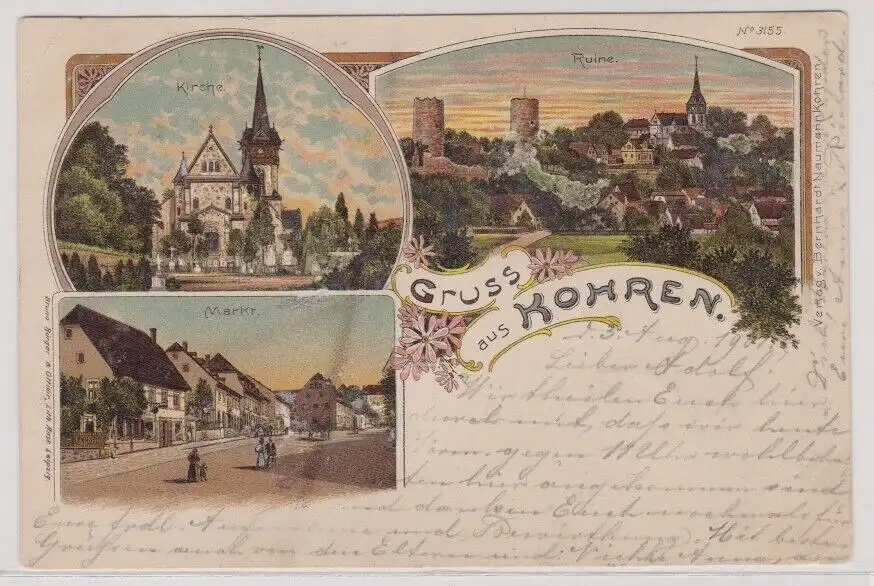 Nº 3155.
Kirche.
Ruine.
Markt.
Gruss
aus KOHREN.
Verlag v. Bernhardt Naumann Kohren
Bruno Bürger & Ottillie, Lith. Anst. Leipzig
d. 3. Aug. 1901.
Lieber Adolf!
Wir theilen Euch hier
durch mit, dass wir heute
Vorm. gegen Uhr wohlbehal
ten hier angekommen sind
und danken Euch nochmals für
Eure frdl. Aufnahme und Bewirthung. Mit besten
Grüssen auch von den Eltern und Anna,
Eure